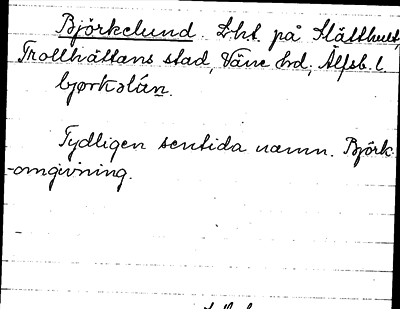 Björkelund. Lht. på Slätthult,
Trollhättans stad, Väne hd, Älfsb. l.
bjørkəlún.
Tydligen sentida namn. Björk-
omgivning.